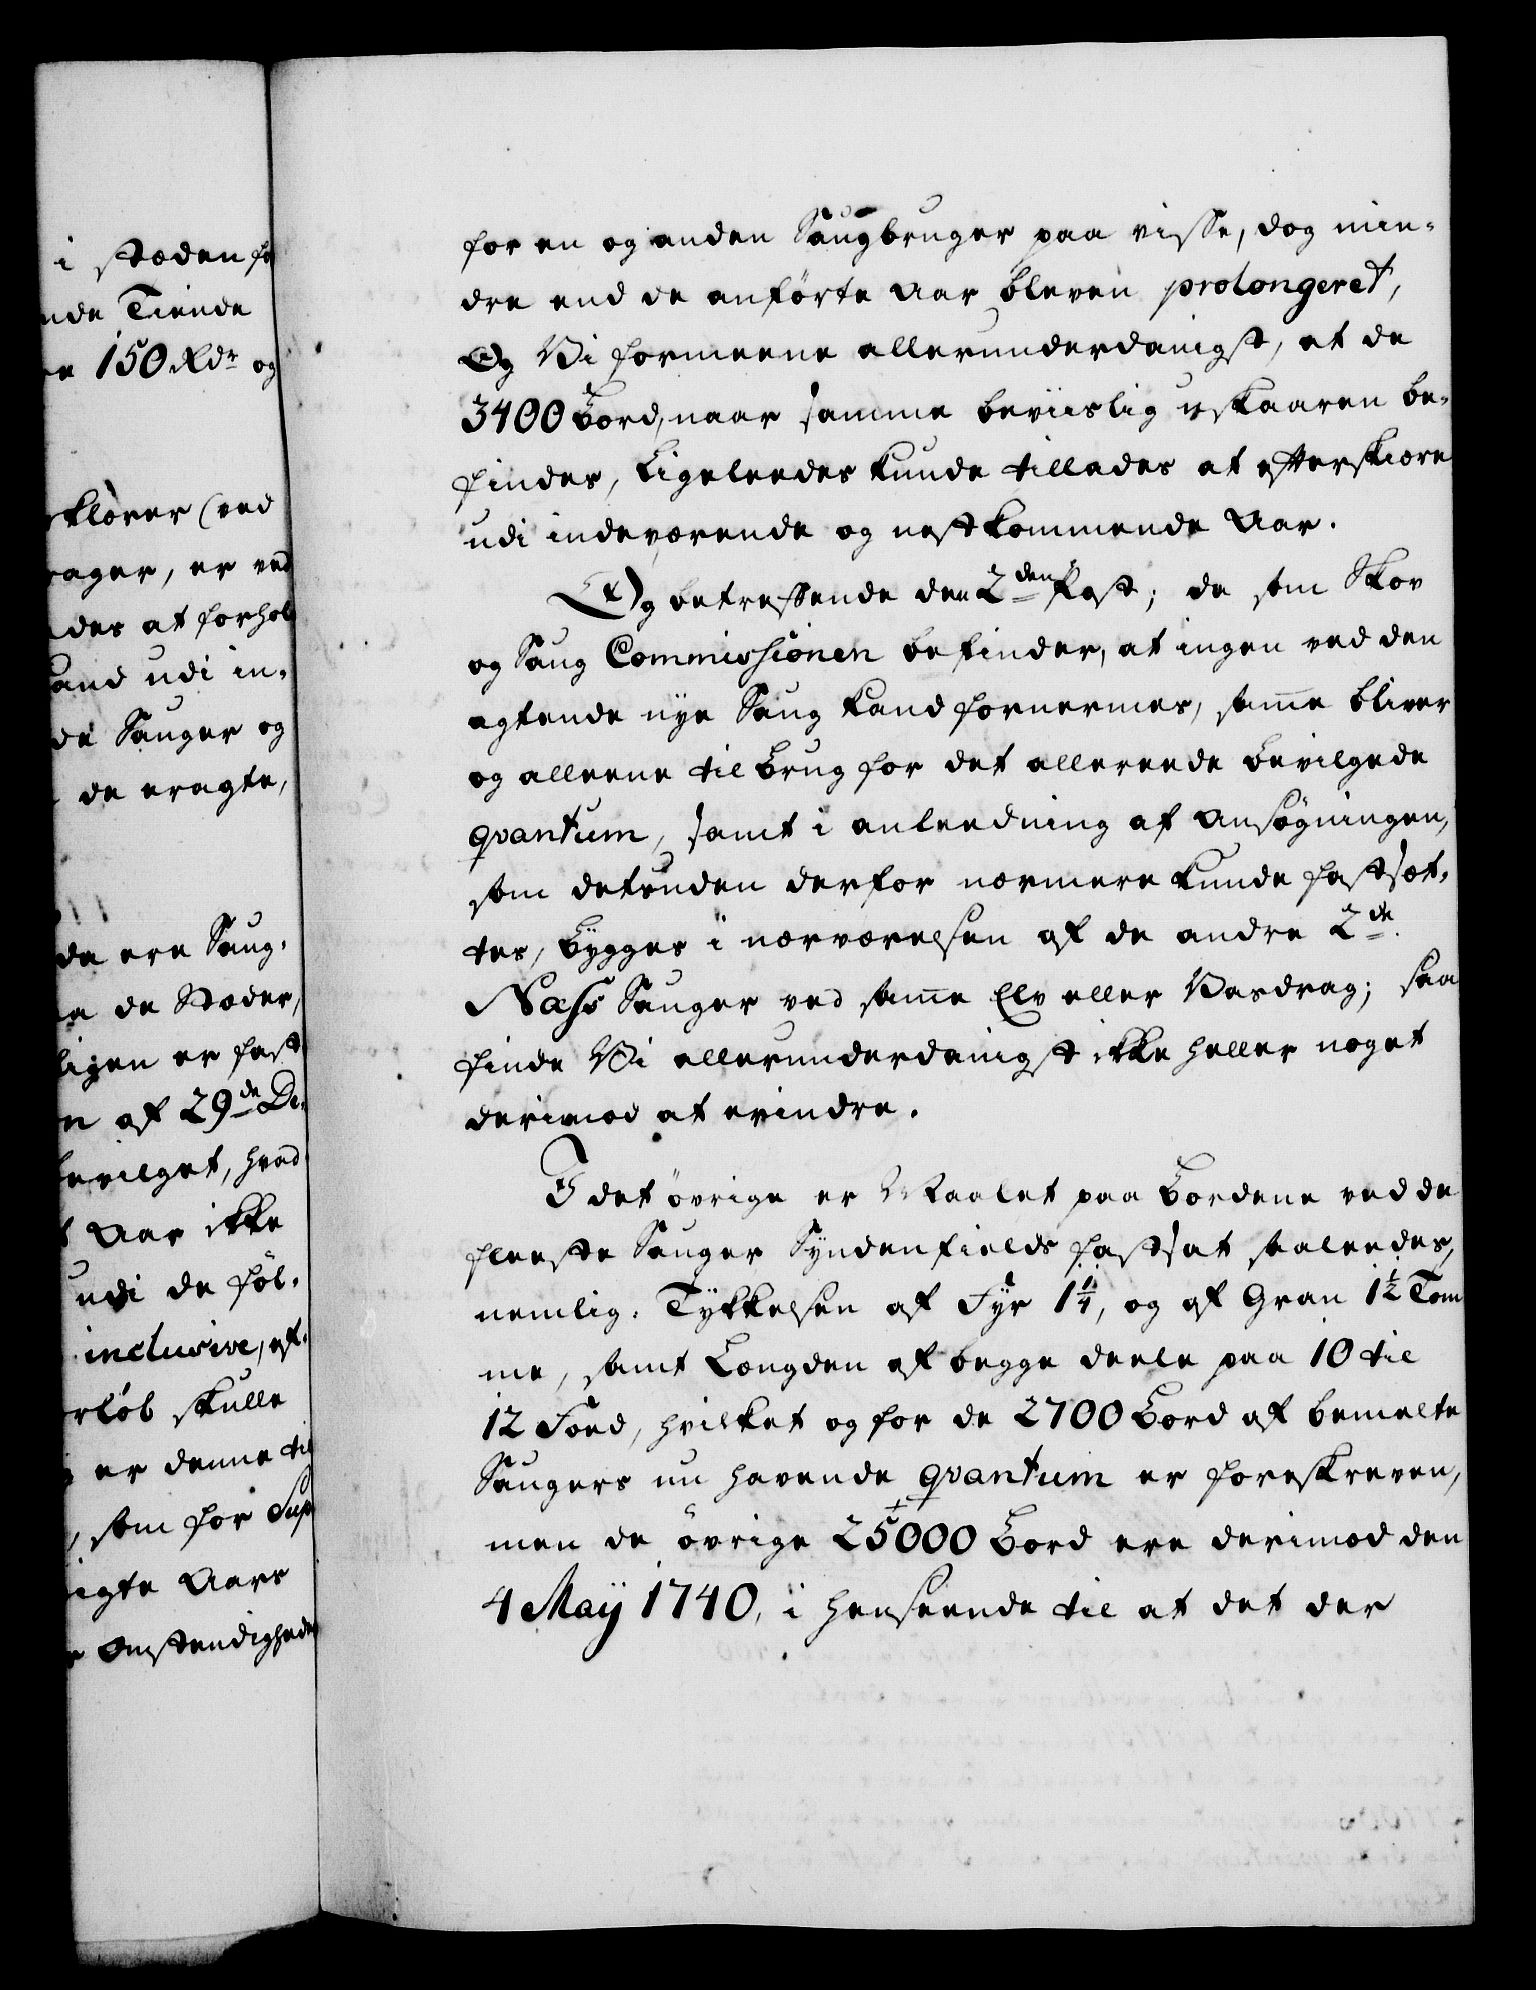 i stæden fo
nde Tiende
re 150 Rdr og
klærer (ved
rager, er ved
des at forhol
and udi in-
de Sauger og
de eragte,
da ere Saug-
aa de Stæder,
ligen er fast
n af 29de De-
bevilget, hvad
t Aar ikke
udi de föl-
inclusive, af-
rlöb skulle
er denne til
, som for Sup
igte Aars
e Omstendigheder
for en og anden Saugbruger paa visse, dog min-
dre end de anförte Aar bleven prolongeret,
Og Vi formeene allerunderdanigst, at de
3400 Bord, naar samme beviislig uskaaren be-
findes, Ligeleedes kunde tillades at efterskiære
udi indeværende og nestkommende Aar.
Og betreffende den 2den Post; da som Skov
og Saug Commissionen befinder, at ingen ved den
agtende nye Saug kand fornermes, sam̄e bliver
og alleene til Brug for det allereede bevilgede
qvantum, samt i anleedning af Ansøgningen,
som desuden derfor nærmere kunde fastsæt-
tes, bygges i nærværelsen af de andre 2de
Næss Sauger ved sam̄e Elv eller Vasdrag; saa
finde Vi allerunderdanigst ikke heller noget
derimod at erindre.
I det övrige er Maalet paa Bordene ved de
fleeste Sauger Syndenfields fastsat saaleedes,
nemlig: Tykkelsen af Fyr 1 1/4, og af Gran 1 1/2 Tom
me, samt Længden af begge deele paa 10 til
12 Foed, hvilket og for de 2700 Bord af bemelte
Saugers nu havende qvantum er foreskreven,
men de övrige 25000 Bord ere derimod den
4 Maij 1740, i henseende til at det der